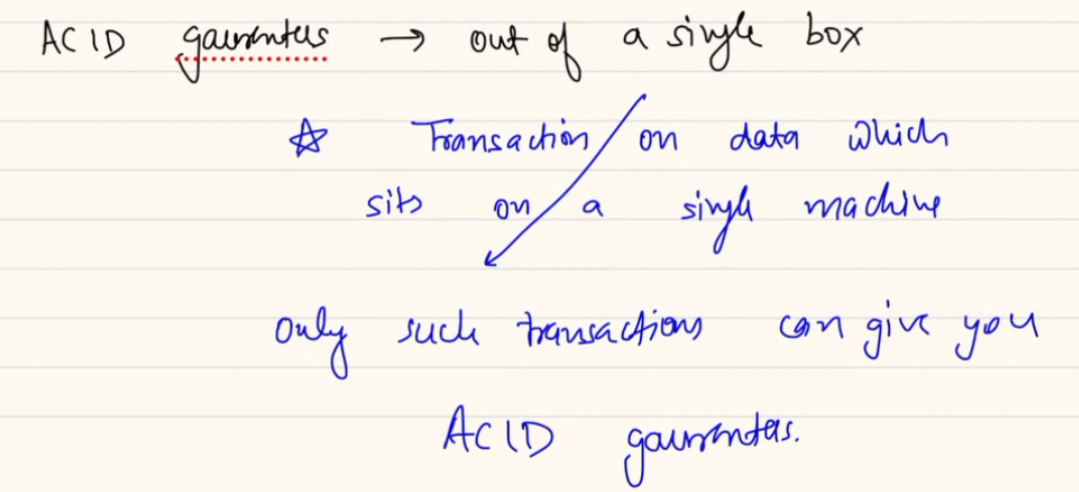 ACID gaurentes → out of a single box
☆ Transaction on data which
sits on a single machine
only such transactions can give you
ACID gaurentes.